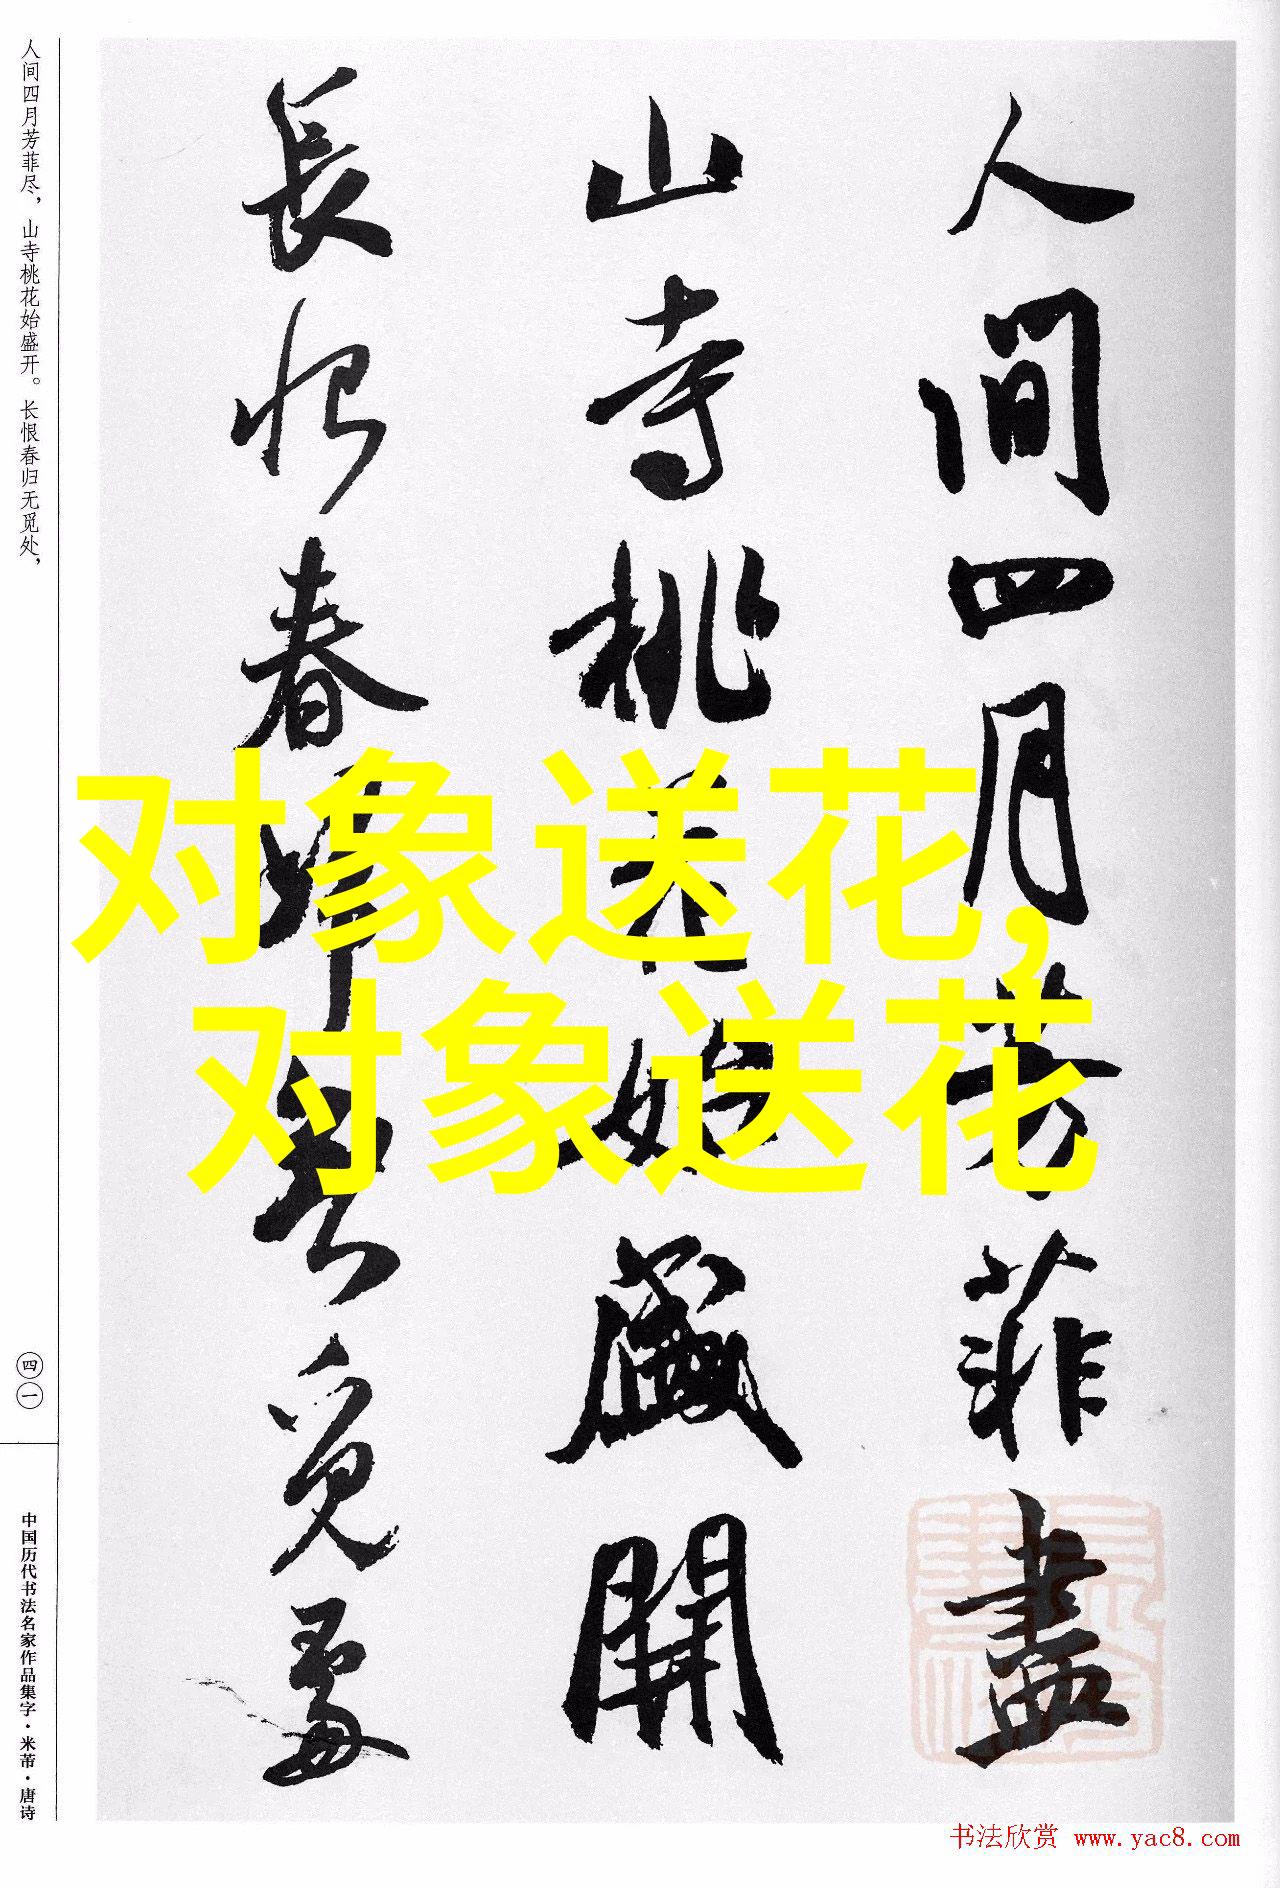 人間四月芳菲盡
山寺桃花始盛開
長恨春歸無覓處
人间四月芳菲尽，山寺桃花始盛开。长恨春归无觅处，
四一
中国历代书法名家作品集字·米芾·唐诗
对象送花，
对象送花
书法欣赏 www.yac8.com